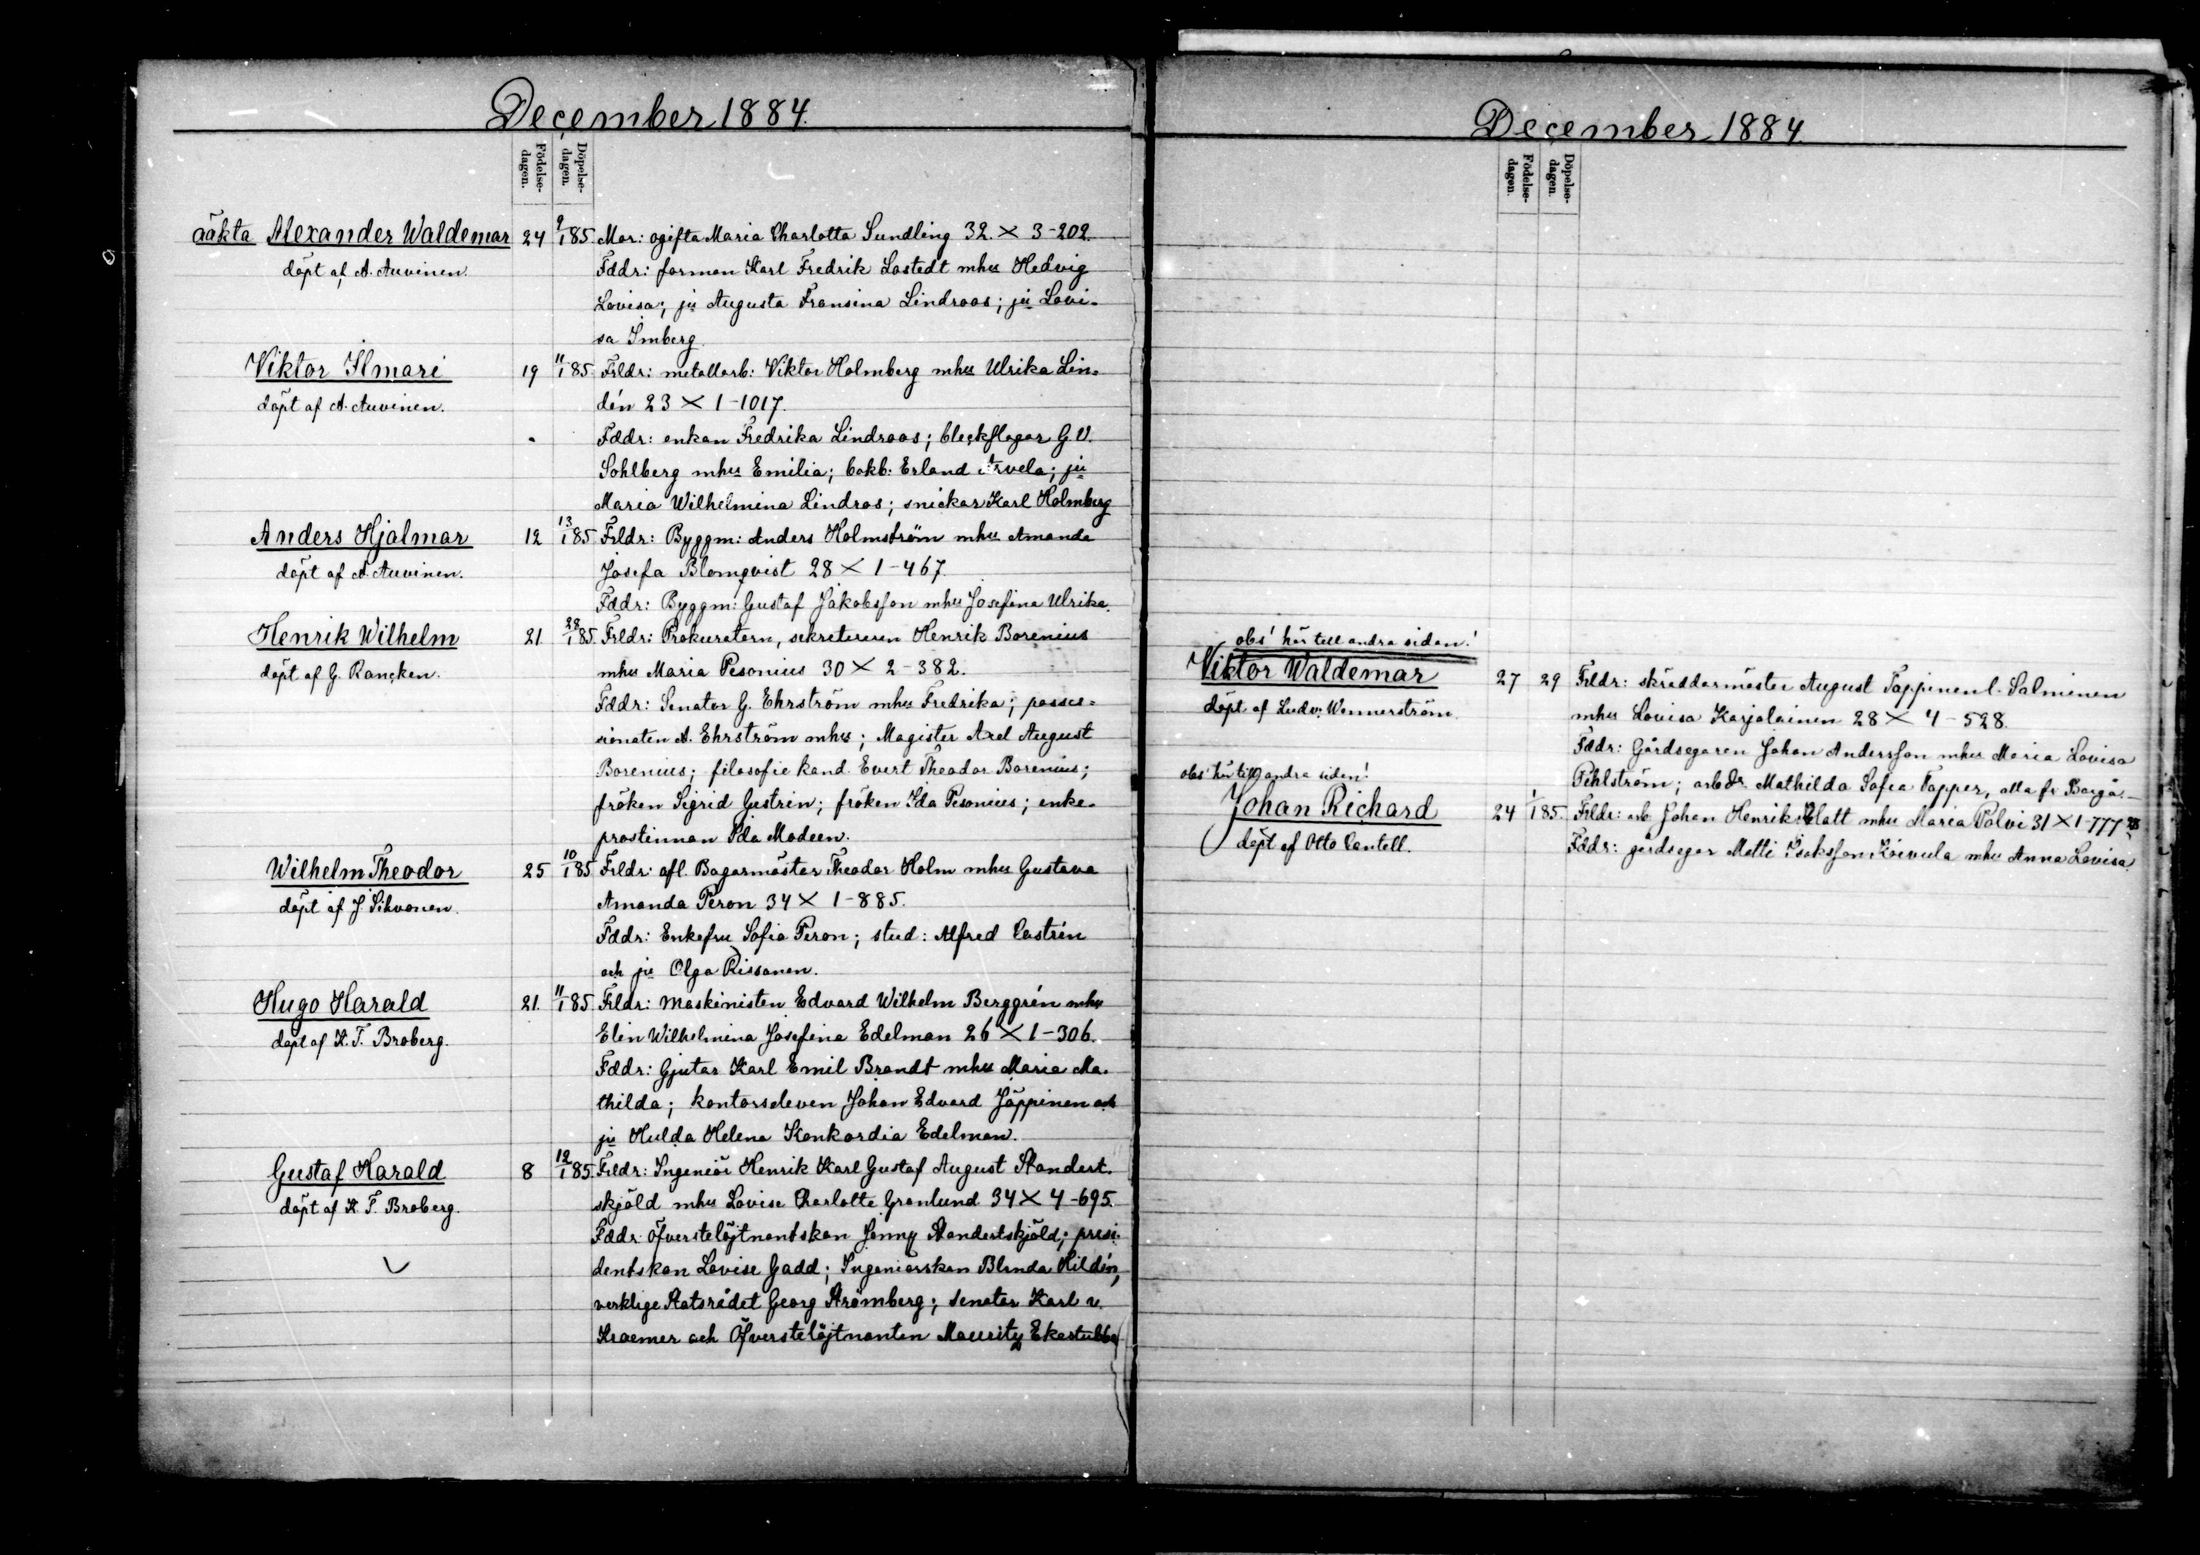 December 1884.
Födelse-
dagen.
Döpelse-
dagen.
oäkta Alexander Waldemar 24 9/1 85. Mor: ogifta Maria Charlotta Sundling 32. X 3-202.
döpt af A. Auvinen. Fddr: forman Karl Fredrik Lostedt mhu Hedvig
Lovisa; ju Augusta Fransina Lindroos; ju Lovi-
sa Imberg.
Viktor Ilmari 19 11/1 85. Frldr: metallarb: Viktor Holmberg mhu Ulrika Lin-
döpt af A. Auvinen. dén 23 X 1-1017.
Fddr: enkan Fredrika Lindroos; bleckslagar G. V.
Sohlberg mhu Emilia; bokb: Erland Arvela; ju
Maria Wilhelmina Lindros; snickar Karl Holmberg
Anders Hjalmar 12 13/1 85 Frldr: Byggm: Anders Holmström mhu Amanda
döpt af A. Auvinen. Josefa Blomqvist 28 X 1-467.
Fddr: Byggm: Gustaf Jakobsson mhu Josefina Ulrika.
Henrik Wilhelm 21 28/1 85. Frldr: Prokuratorn, sekreteraren Henrik Borenius
döpt af G. Rancken. mhu Maria Pesonius 30 X 2-382.
Fddr: Senator G. Ehrström mhu Fredrika; posses-
sionaten A. Ehrström mhu; Magister Axel August
Borenius; filosofie kand. Evert Theodor Borenius;
fröken Sigrid Gestrin; fröken Ida Pesonius; enke-
prostinnan Ida Modeen.
Wilhelm Theodor 25 10/1 85 Frldr: afl. Bagarmästar Theodor Holm mhu Gustava
döpt af J. Sihvonen. Amanda Peron 34 X 1-885.
Fddr: Enkefru Sofia Peron; stud: Alfred Castrén
och ju Olga Rissanen.
Hugo Harald 21. 11/1 85 Frldr: Maskinisten Edvard Wilhelm Berggrén mhu
döpt af K. T. Broberg. Elin Wilhelmina Josefina Edelman 26 X 1-306.
Fddr: Gjutar Karl Emil Brandt mhu Maria Ma-
thilda; kontorseleven Johan Edvard Jäppinen och
ju Hulda Helena Konkordia Edelman.
Gustaf Harald 8 12/1 85. Frldr: Ingeniör Henrik Karl Gustaf August Standert-
döpt af K. T. Broberg. skjöld mhu Lovise Charlotte Granlund 34 X 4-695.
Fddr: Öfverstelöjtnantskan Jenny Standertskjöld; presi-
dentskan Lovise Gadd; Ingeniörskan Blenda Hildén,
verklige Statsrådet Georg Strömberg; Senator Karl v.
Kraemer och Öfverstelöjtnanten Mauritz Ekestubbe
December 1884.
Födelse-
dagen.
Döpelse-
dagen.
obs! hör till andra sidan!
Viktor Waldemar 27 29 Frldr: skräddarmäster August Tappinen l. Salminen
döpt af Ludv: Wennerström. mhu Lovisa Karjalainen 28 X 4-528.
Fddr: Gårdsegaren Johan Andersson mhu Maria Lovisa
Pihlström; arb Dr Mathilda Sofia Tapper, alla fr Borgå.
obs! hör till andra sidan!
Johan Richard 24 1/1 85. Frldr: arb Johan Henrik Platt mhu Maria Polvi 31 X 1-777
döpt af Otto Cantell. Fddr: gårdsegar Matti Isaksson Koivula mhu Anna Lovisa.